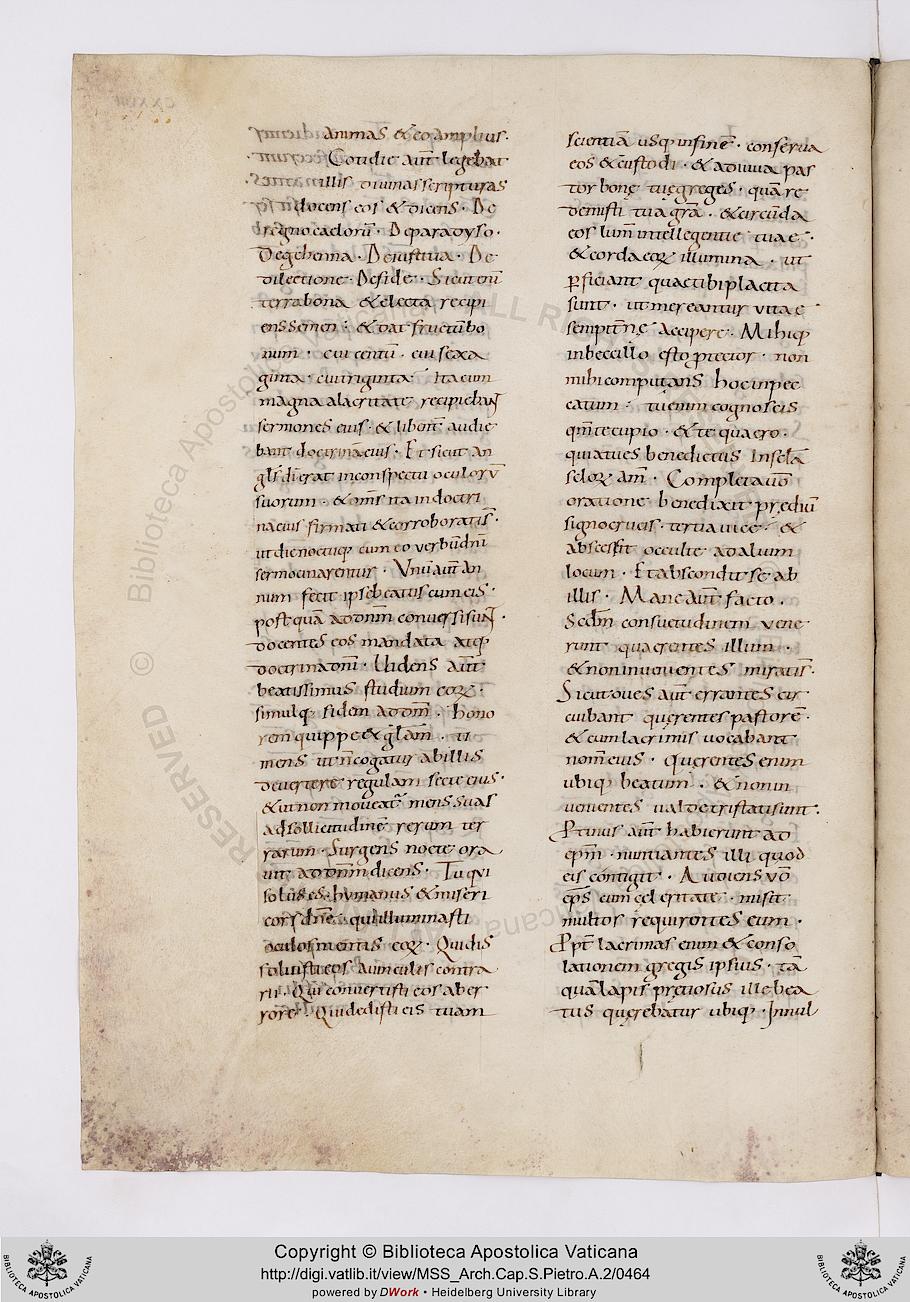 animas & eo amplius·
Cotidie aut̄ legebat
illis divinas scripturas
docens eos & dicens · De
regno caelorū· De paradyso·
De gehenna· De iustitia· De
dilectione· De fide· Sicut enī
terra bona & electa recipi
ens semen· & dat fructū bo
num· cui centū· cui sexa
ginta· cui triginta· Ita cum
magna alacritate recipiebant
sermones eius· & libent̄ audie
bant doctrinā eius· Et sicut an
gt̄s dī erat in conspectu oculorū
suorum· & om̄s ita in doctri
na eius firmati & corroborati s̄·
ut die noctuq; cum eo verbū dn̄i
sermocinarentur· Unū aut̄ an
num fecit ipse beatus cum eis·
postquā ad dn̄m conversi sunt·
docentes eos mandata atq;
doctrinā dn̄i· Videns aut̄
beatissimus studium eoꝝ·
simulq; fidem ad dn̄m· hono
rem quippe & gl̄am· ti
mens ut n̄ cogatur ab illis
devertere regulam secte eius·
& ut non moveat̄ mens suas
ad sollicitudinē rerum ter
rarum· Surgens nocte ora
vit ad dn̄m dicens· Tu qui
solus es humanus & miseri
cors dn̄e· qui illuminasti
oculos mentis eoꝝ· Qui dis
solvisti eos a vinculis contra
rii· Qui convertisti eos ab er
rore· Qui dedisti eis tuam
scientiā usq; in finē· conserva
eos & custodi· & adiuva pas
tor bonę tuę greges· quā re
demisti tua gr̄a· & circūda
eos lum̄ intellegentie tuae·
& corda eoꝝ illumina· ut
ꝑficiant quae tibi placita
sunt· ut mereantur vitae
sempit̄nę accipere· Mihiq;
inbecillo esto p̄tior· non
mihi computans hoc in pec
catum· tu enim cognoscis
qm̄ te cupio· & te quaero·
quia tu es benedictus In scl̄a
scloꝝ am̄· Completa v̄o
oratione benedixit p̄ędiū
signo crucis· tertia vice· &
abscessit occulte ad alium
locum· Et abscondit se ab
illis· Mane aut̄ facto·
Scd̄m consuetudinem vene
runt quaerentes illum·
& non invenientes mirati s̄·
Sicut oves aut̄ errantes cir
cuibant quęrentes pastorē·
& cum lacrimis vocabant
nom̄ eius· Quęrentes enim
ubiq; beatum· & non in
venientes valde tristati sunt·
Ꝓtinus aut̄ habierunt ad
epm̄· nuntiantes illi quod
eis contigit· Audiens v̄o
ep̄s cum cęleritate· misit
multos requirentes eum·
Ppt̄ lacrimas enim & conso
lationem gregis ipsius· tā
quā lapis p̄ęciosus ille bea
tus quęrebatur ubiq;· In mul
© Biblioteca Apostolica Vaticana ALL RIGHTS RESERVED
Copyright © Biblioteca Apostolica Vaticana
http://digi.vatlib.it/view/MSS_Arch.Cap.S.Pietro.A.2/0464
powered by DWork • Heidelberg University Library
BIBLIOTECA APOSTOLICA VATICANA
BIBLIOTECA APOSTOLICA VATICANA